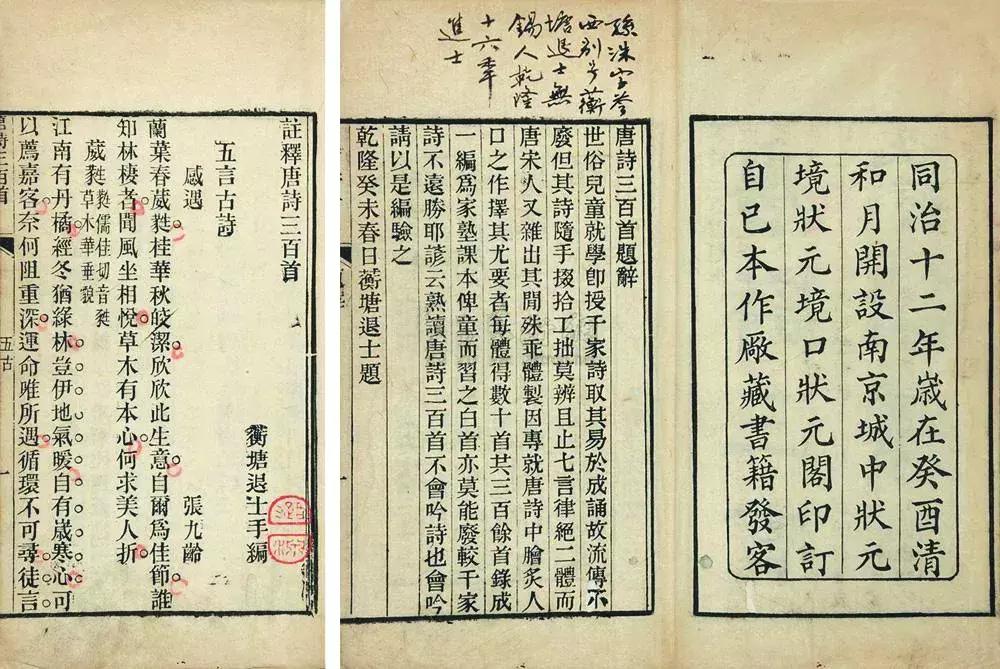 同治十二年歲在癸酉清
和月開設南京城中狀元
境狀元境口狀元閣印訂
自己本作厰藏書籍發客
孫洙字苓
西别号蘅
塘退士無
錫人乾隆
十六年
進士
唐詩三百首題辭
世俗兒童就學卽授千家詩取其易於成誦故流傳不
廢但其詩隨手掇拾工拙莫辨且止七言律絕二體而
唐宋人又雜出其閒殊乖體製因專就唐詩中膾炙人
口之作擇其尤要者每體得數十首共三百餘首錄成
一編爲家塾課本俾童而習之白首亦莫能廢較千家
詩不遠勝耶諺云熟讀唐詩三百首不會吟詩也會吟
請以是編驗之
乾隆癸未春日蘅塘退士題
註釋唐詩三百首
蘅塘退士手編
五言古詩
感遇 張九齡
蘭葉春葳蕤桂華秋皎潔欣欣此生意自爾爲佳節誰
知林棲者聞風坐相悅草木有本心何求美人折
葳蕤蕤儒佳切音蕤
草木華垂貌
江南有丹橘經冬猶綠林豈伊地氣暖自有歲寒心可
以薦嘉客奈何阻重深運命唯所遇循環不可尋徒言
唐詩三百首
五古
一